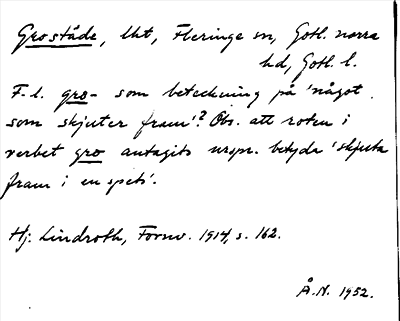 Groståde, lht, Fleringe sn, Gotl. norra
hd, Gotl. l.
F.l. gro- som beteckning på 'något
som skjuter fram'? Obs. att roten i
verbet gro antagits urspr. betyda 'skjuta
fram i en spets'.
Hj. Lindroth, Fornv. 1914, s. 162.
Å.N. 1952.